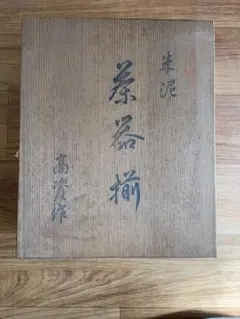 朱泥
茶器揃
高資作